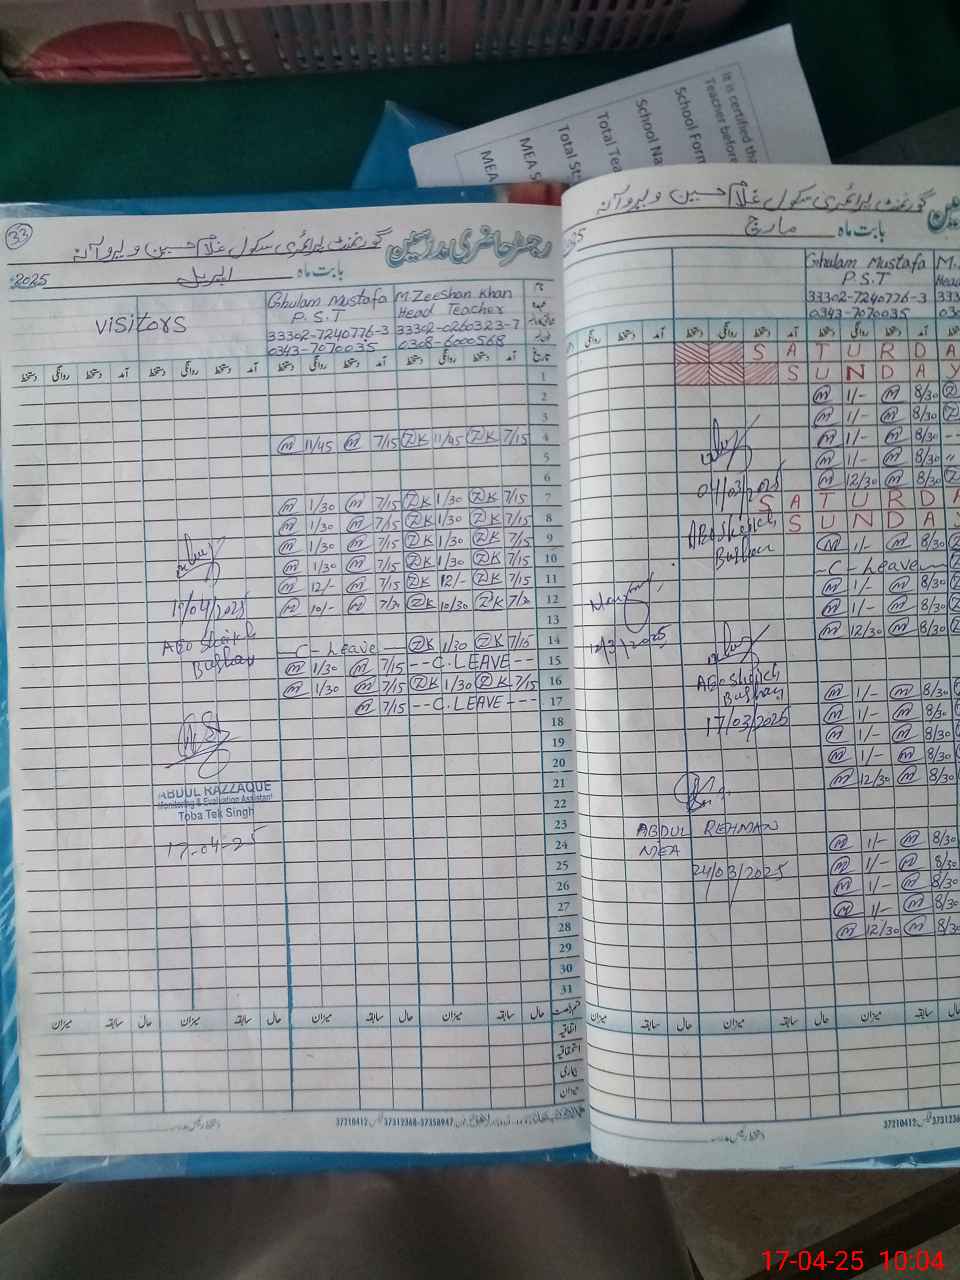 It is certified tha
Teacher before
School Form
School Na
Total Tea
Total St
MEA S
MEA
33
رجسٹر حاضری مدرسین
گورنمنٹ پرائمری سکول غلام حسین ویروآنہ
بابت ماہ اپریل 2025
visitors
Ghulam Mustafa
P.S.T
33302-7240776-3
0343-7070035
M. Zeeshan Khan
Head Teacher
33302-0260323-7
0308-6000568
تاریخ
آمد دستخط روانگی دستخط آمد دستخط روانگی دستخط آمد دستخط روانگی دستخط آمد دستخط روانگی دستخط
1
2
3
M 11/45 M 7/15 ZK 11/45 ZK 7/15 4
5
6
M 1/30 M 7/15 ZK 1/30 ZK 7/15 7
M 1/30 M 7/15 ZK 1/30 ZK 7/15 8
M 1/30 M 7/15 ZK 1/30 ZK 7/15 9
M 1/30 M 7/15 ZK 1/30 ZK 7/15 10
M 12/- M 7/15 ZK 12/- ZK 7/15 11
M 10/- M 7/30 ZK 10/30 ZK 7/30 12
13
-C- Leave- ZK 1/30 ZK 7/15 14
M 1/30 M 7/15 --C.LEAVE-- 15
M 1/30 M 7/15 ZK 1/30 ZK 7/15 16
M 7/15 --C.LEAVE--- 17
18
19
20
21
22
23
24
25
26
27
28
29
30
31
/04/2025
AEO Sheikh
Bushan
ABDUL RAZZAQUE
Monitoring & Evaluation Assistant
Toba Tek Singh
17-04-25
میزان سابقہ حال میزان سابقہ حال میزان سابقہ حال میزان سابقہ حال
اتفاقیہ
بیماری
میزان
37210412 37312368-37358947
گورنمنٹ پرائمری سکول غلام حسین ویروآنہ
بابت ماہ مارچ
Ghulam Mustafa
P.S.T
33302-7240776-3
0343-7070035
M.
Head
333
030
SATURDA
SUNDAY
M 1/- M 8/30 Z
M 1/- M 8/30 Z
M 1/- M 8/30 --
M 1/- M 8/30 "
M 12/30 M 8/30 Z
SATURDA
SUNDAY
M 1/- M 8/30 Z
-C- Leave-
M 1/- M 8/30
M 1/- M 8/30
M 12/30 M 8/30
M 1/- M 8/30
M 1/- M 8/30
M 1/- M 8/30
M 1/- M 8/30
M 12/30 M 8/30
M 1/- M 8/30
M 1/- M 8/30
M 1/- M 8/30
M 1/- M 8/30
M 12/30 M 8/30
04/03/2025
AEO Sheikh
Bushan
/3/2025
AEO Sheikh
Bushan
17/03/2025
ABDUL REHMAN
MEA
24/03/2025
میزان سابقہ حال میزان سابقہ حال میزان
37210412 3731236
17-04-25 10:04